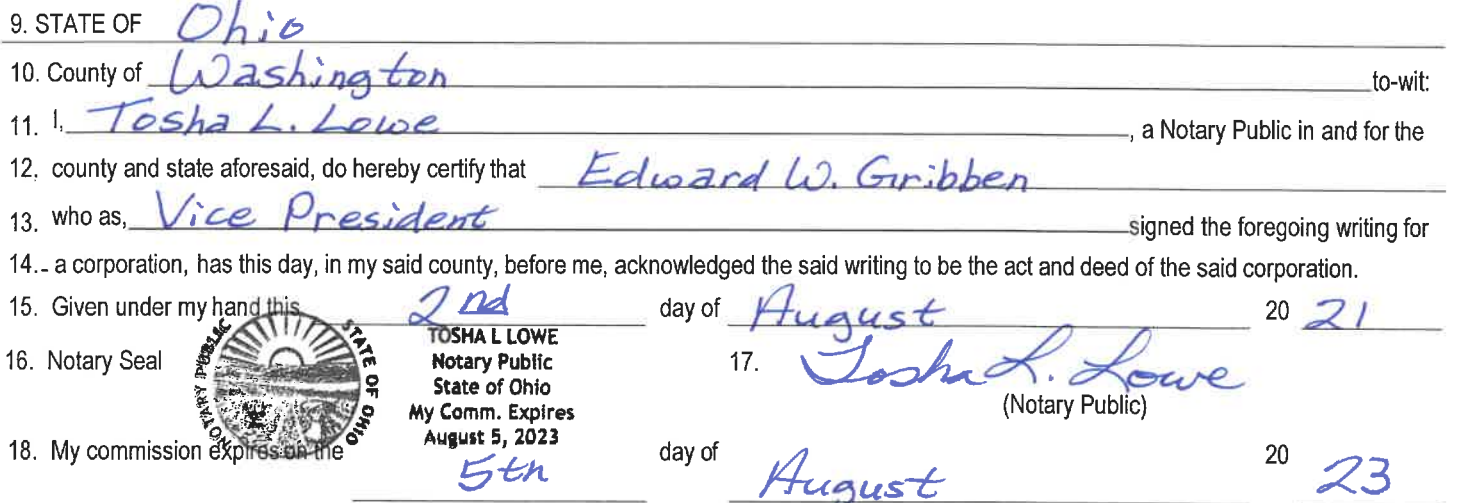 9. STATE OF Ohio
10. County of Washington to-wit:
11. I, Tosha L. Lowe, a Notary Public in and for the
12. county and state aforesaid, do hereby certify that Edward W. Gribben
13. who as, Vice President signed the foregoing writing for
14. a corporation, has this day, in my said county, before me, acknowledged the said writing to be the act and deed of the said corporation.
15. Given under my hand this 2nd day of August 20 21
16. Notary Seal
NOTARY PUBLIC
STATE OF OHIO
TOSHA L LOWE
Notary Public
State of Ohio
My Comm. Expires
August 5, 2023
17. Tosha L. Lowe
(Notary Public)
18. My commission expires on the 5th day of August 20 23